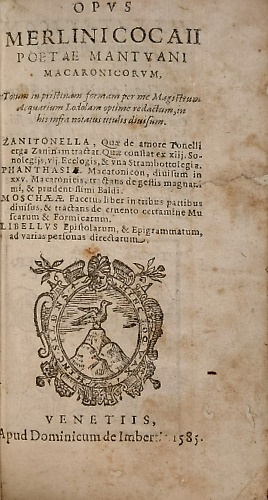 OPVS
MERLINI COCAII
POETAE MANTVANI
MACARONICORVM,
Totum in pristinam formam per me Magistrum
Acquarium Lodolam optime redactum, in
his infra notatis titulis diuisum.
ZANITONELLA, Quæ de amore Tonelli
erga Zaninam tractat. Quæ constat ex xiij. So-
nolegijs, vij. Ecclogis, & vna Strambottolegia.
PHANTHASIÆ Macaronicon, diuisum in
xxv. Macaronicis, tractans de gestis magnani-
mi, & prudentissimi Baldi.
MOSCHÆÆ Facetus liber in tribus partibus
diuisus, & tractans de cruento certamine Mu
scarum & Formicarum.
LIBELLVS Epistolarum, & Epigrammatum,
ad varias personas directarum.
VENETIIS,
Apud Dominicum de Imberti. 1585.